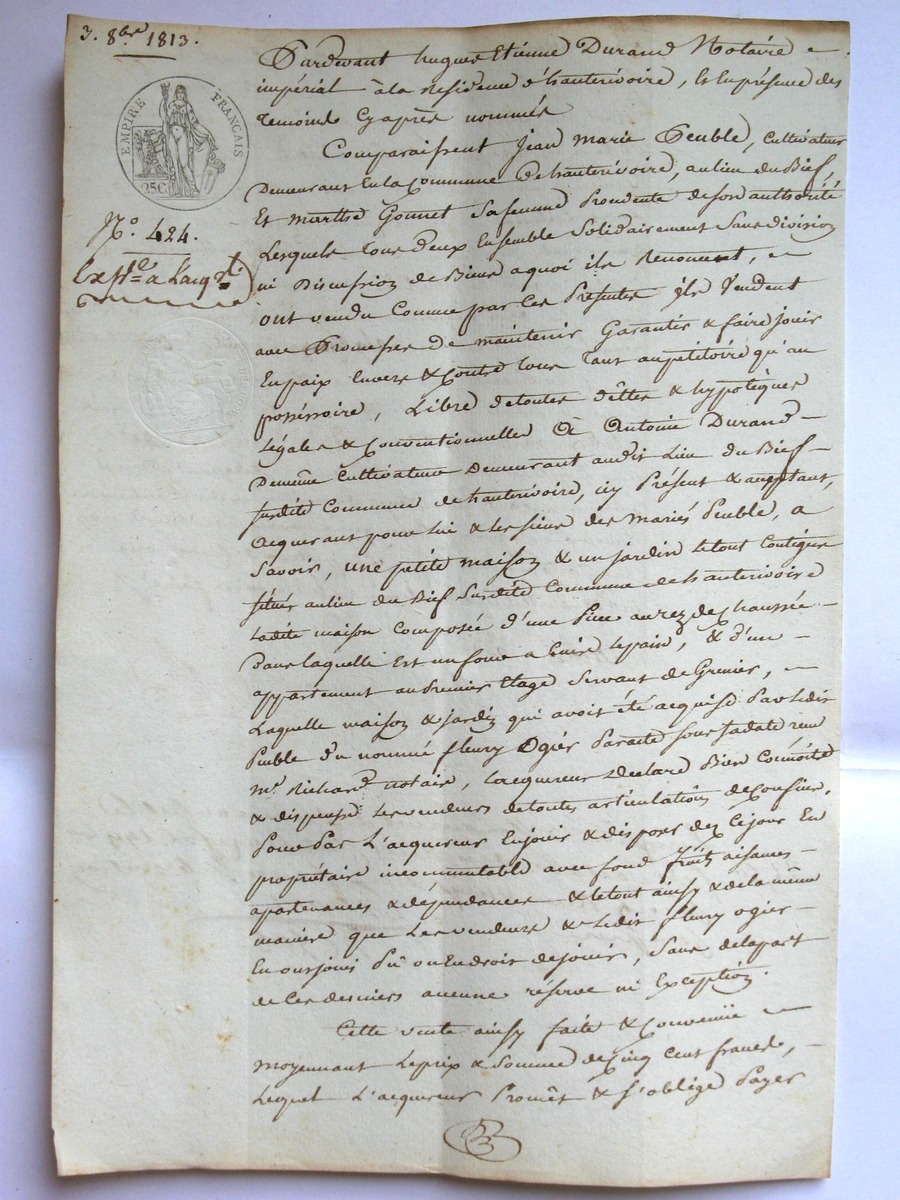 3. 8bre 1813.
EMPIRE FRANÇAIS
25C
No. 424.
a l'aqr
Pardevant hugues Etienne Durand Notaire
impérial à la Residence d'hauterivoire, Et En présence des
Temoins Cyaprès nommés
Comparaissent Jean Marie Peuble, cultivateur
Demeurant En la Commune de hauterivoire, au lieu du Bief,
Et marthe Gonnet Sa femme Procedente de Son authorité
Lesquels tous deux Ensemble Solidairement Sans division
ni Discussion de Biens aquoi ils Renoncent,
ont vendu Comme par Ces Presentes ils Vendent
avec Promesses de maintenir Garantir & faire jouir
En paix Envers & Contre tous Tant au pétitoire qu'au
possessoire, Libre de toutes dêttes & hypotêques
Légales & Conventionnelles à Antoine Durand
Demême Cultivateur Demeurant audit Lieu du Bief
susdite Commune de hauterivoire, icy Présent & acceptant,
acquerant pour lui & les siens des mariés Peuble, a
Savoir, une petite maison & un jardin le tout Contigue
situés au lieu du Bief Susdite Commune de hauterivoire
Ladite maison Composée d'une Piece au rez de Chaussée
Dans laquelle Est un four a Cuire le pain, & d'un
appartement au Premier Etage Servant de Grenier,
Laquelle maison & jardin qui avoit été acquise Par Ledit
Peuble du nommé fleury Ogier Par acte sous sa date reçu
Me. Richard notaire, L'acquereur declare Bien Connoitre
& dispense Les vendeurs de toutes articulations de Confins,
Pour Par L'acquereur En jouir & disposer dez Ce jour En
propriétaire incommutable avec fond fruits aisances
apartenances & dépendances & le tout ainsy & de la même
maniere que Les vendeurs & Ledit fleury ogier
En ont joui Pû ou En droit de jouir, Sans de la part
de Ces derniers aucune réserve ni Exception.
Cette vente ainsy faite & Convenüe
moyennant Le prix & Somme de Cinq Cent francs,
Lequel L'acquereur Promêt & s'oblige Payer